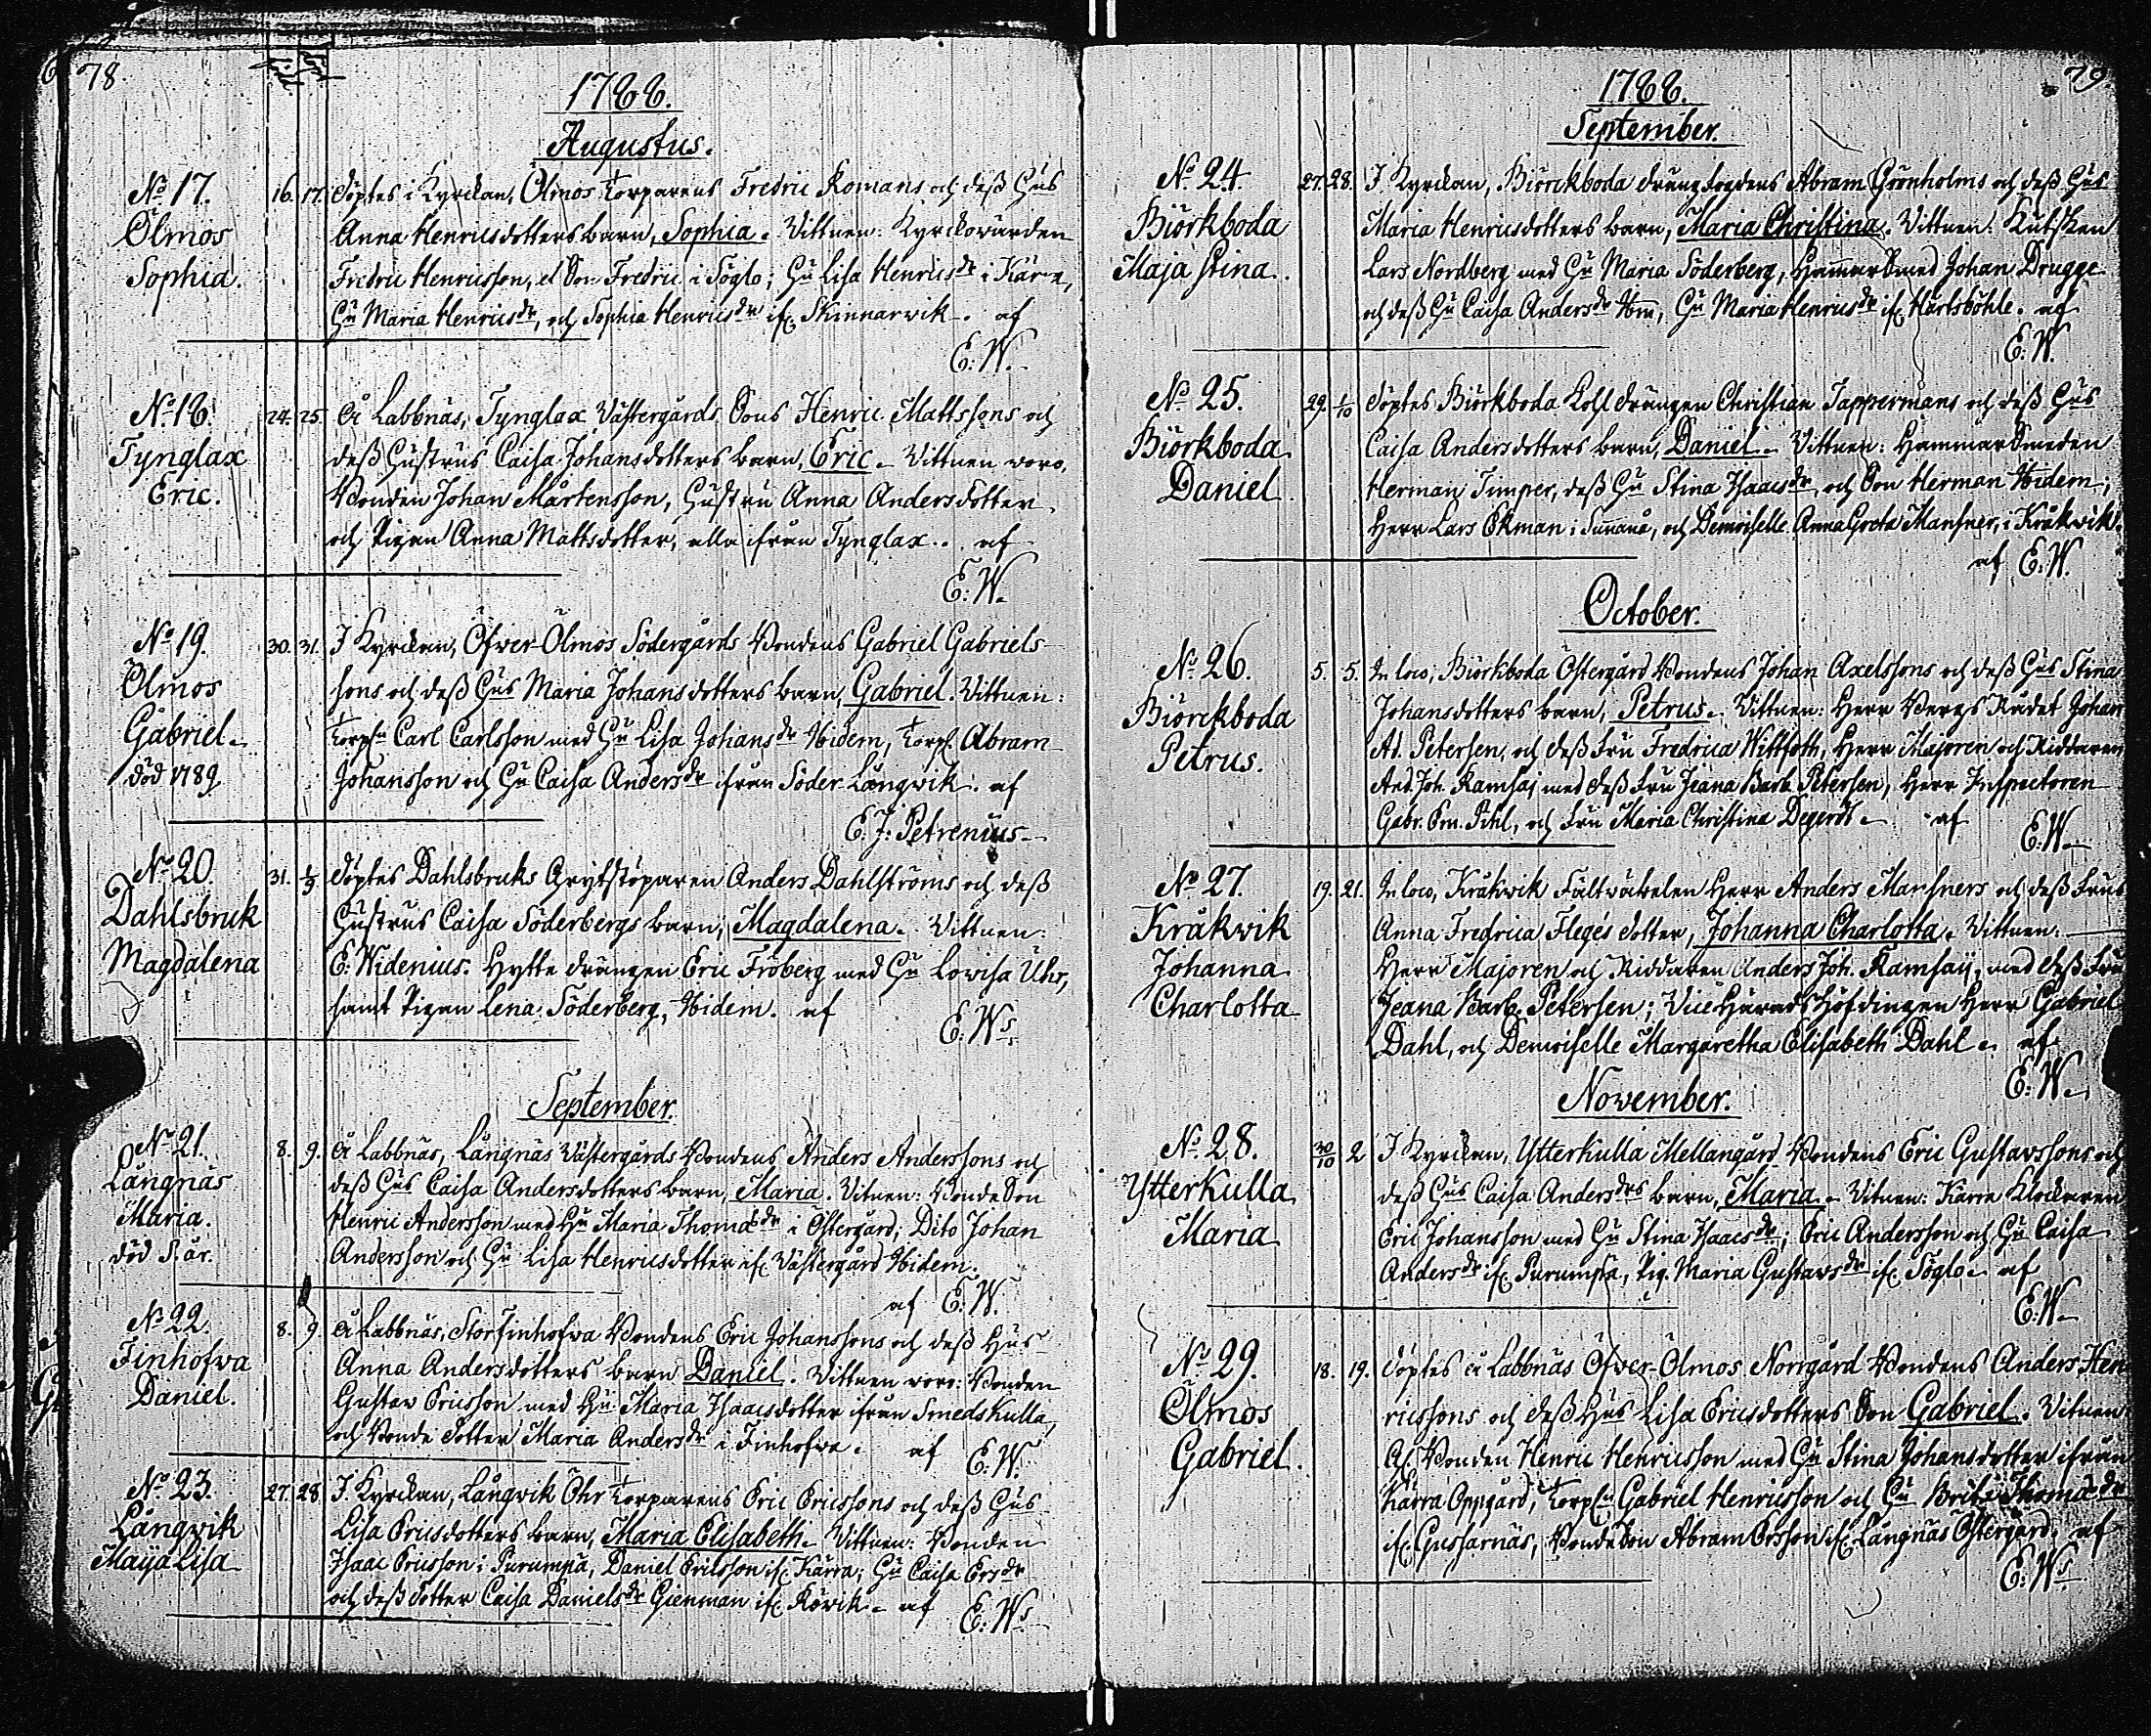 78
1788.
Augustus.
No 17. 16. 17. döptes i Kyrckan, Ölmos Torparens Fredric Romans och deß Hus
Ölmos Anna Henricsdotters barn, Sophia. Vittnen: Kyrckowärden
Sophia. Fredric Henricsson, et Son Fredric i Söglo; Hu Lisa Henricsdr i Kärra,
Hu Maria Henricsdr, och Sophia Henricsdr if. Skinnarwik. af
E. W.
No 18. 24. 25. å Labbnäs, Tynglax Västergårds Sons Henric Mattssons och
Tynglax deß Hustrus Caisa Johansdotters barn, Eric. Vittnen woro,
Eric. Bonden Johan Mårtensson, Hustru Anna Andersdotter,
och Pigan Anna Mattsdotter, alla ifrån Tynglax. af
E. W.
No 19. 30. 31. I Kyrckan, Öfwer-Ölmos Södergårds Bondens Gabriel Gabriels-
Ölmos sons och deß Hus Maria Johansdotters barn, Gabriel. Vittnen:
Gabriel. Torpn Carl Carlsson med Hu Lisa Johansdr Ibidem, Torp. Abram
död 1789 Johansson och Hu Caisa Andersdr ifrån Söder Långwik. af
E. J. Petrenius
No 20. 31. 1/9 döptes Dahlsbruks Grytstöparen Anders Dahlströms och deß
Dahlsbruk Hustrus Caisa Söderbergs barn, Magdalena. Vittnen:
Magdalena E. Widenius. Hytte drängen Eric Fröberg med Hu Lovisa Uhr,
samt Pigan Lena Söderberg, Ibidem. af
E. Ws
September.
No 21. 8. 9. å Labbnäs, Långnäs Västergårds Bondens Anders Anderssons och
Långnäs deß Hus Caisa Andersdotters barn, Maria. Vitnen: Bonde Son
Maria. Henric Andersson med Hu Maria Thomædr i Östergård; Dito Johan
död s. år. Andersson och Hu Lisa Henricsdotter if. Västergård Ibidem.
af E. W.
No 22. 8. 9. å Labbnäs, Storfinhofwa Bondens Eric Johanssons och deß Hus
Finhofwa Anna Andersdotters barn Daniel. Vittnen woro: Bonden
Daniel. Gustav Ericsson med Hu Maria Isaacsdotter ifrån Smedskulla,
och Bonde dotter Maria Andersdr i Finhofwa. af
E. W.
No 23. 27. 28. I Kyrckan, Långvik Öhr Torparens Eric Ericssons och deß Hus
Långvik Lisa Ericsdotters barn, Maria Elisabeth. Vittnen: Bonden
Maija Lisa Isaac Ericsson i Purumpä, Daniel Ericsson if. Kärra, Hu Caisa Ersdr
och deß dotter Caisa Danielsdr Gienman if. Rövik. af
E. Ws
79.
1788.
September.
No 24. 27. 28. I Kyrckan, Biörckboda drängfogdens Abram Grönholms och deß Hus
Biörkboda Maria Henricsdotters barn, Maria Christina. Vittnen: Kutsken
Maja Stina. Lars Nordberg med Hu Maria Söderberg, Hammarsmed Johan Drugge
och deß Hu Caisa Andersdr Ibm, Hu Maria Henricsdr if. Hartsböhle. af
E. W.
No 25. 29. 1/10 döptes Biörkboda Kohl drängen Christian Tappermans och deß Hus
Biörkboda Caisa Andersdotters barn, Daniel. Vittnen: Hammarsmeden
Daniel Herman Timper, deß Hu Stina Isaacsdr, och Son Herman Ibidem;
Herr Lars Ekman i Sunnanå, och Demoiselle Anna Greta Mansner, i Kråkvik.
af E. W.
October.
No 26. 5. 5. In loco, Biörkboda Östergård Bondens Johan Axelssons och deß Hus Stina
Biörckboda Johansdotters barn, Petrus. Vittnen: Herr Bergs Rådet Johan
Petrus. Ad. Petersen, och deß Fru Fredrica Wittfoth, Herr Majoren och Riddaren
And. Joh. Ramsaj med deß Fru Jeana Barb. Petersen, Herr Inspectoren
Gabr. Em. Pihl, och Fru Maria Christina Degerdt. af
E. W.
No 27. 19. 21. In loco, Kråkvik Fältväbelen Herr Anders Mansners och deß Frus
Kråkvik Anna Fredrica Flegés dotter, Johanna Charlotta. Vittnen:
Johanna Herr Majoren och Riddaren Anders Joh. Ramsaij, med deß Fru
Charlotta Jeana Barb. Petersen; Vice Härads Höfdingen Herr Gabriel
Dahl, och Demoiselle Margaretha Elisabeth Dahl. af
E. W.
November.
No 28. 30/10 2 I Kyrckan, Ytterkulla Mellangård Bondens Eric Gustavssons och
Ytterkulla deß Hus Caisa Andersdrs barn, Maria. Vitnen: Kärra Klockaren
Maria Eric Johansson med Hu Stina Isaacsdr; Eric Andersson och Hu Caisa
Andersdr if. Purumpä, Pig. Maria Gustavsdr if. Söglo. af
E. W.
No 29. 18. 19. döptes å Labbnäs Öfwer-Ölmos Norrgård Bondens Anders Hen-
Ölmos ricssons och deß Hus Lisa Ericsdotters Son Gabriel. Vitnen
Gabriel. Gl. Bonden Henric Henricsson med Hu Stina Johansdotter ifrån
Kärra Oppgård, Torpn Gabriel Henricsson och Hu Brita Thomædr
if. Gussarnäs, Bonde Son Abram Ersson if. Långnäs Östergård, af
E. Ws